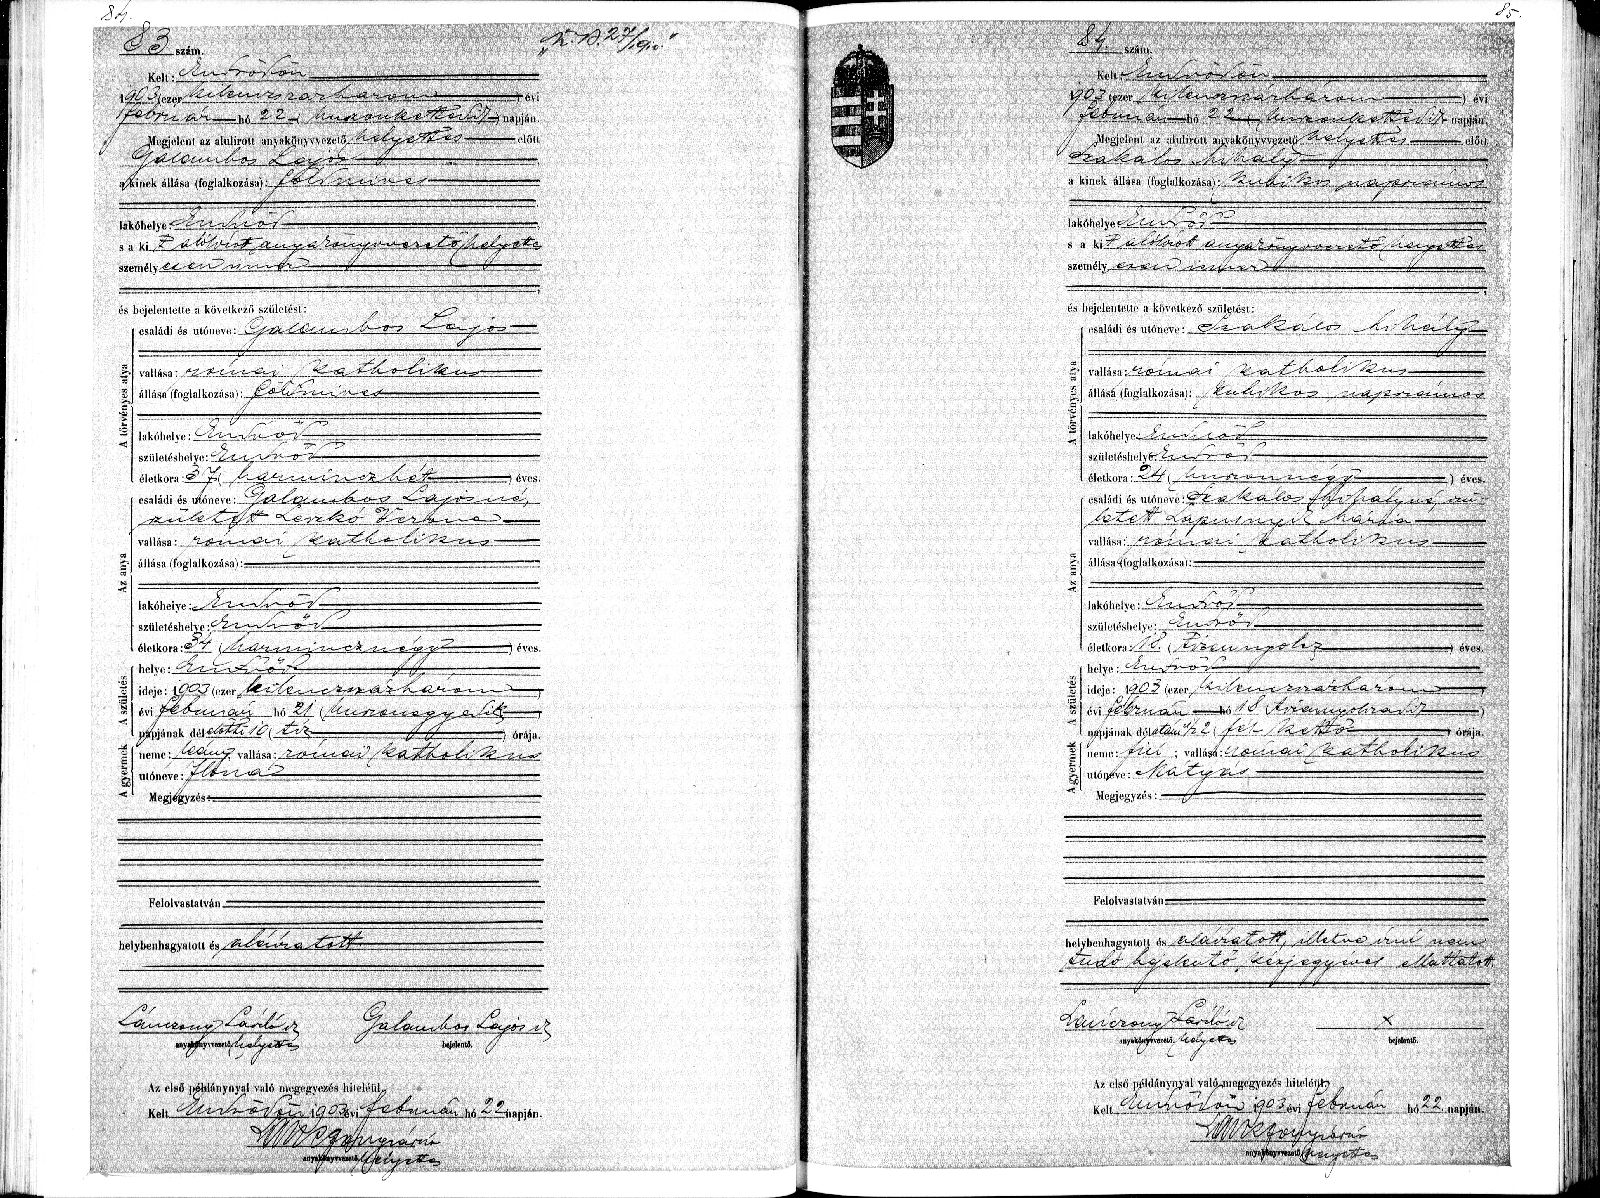 84.
83 szám.
Kelt: Endrődön
1903 (ezer kilenczszázhárom) évi
február hó 22 (huszonkettedik) napján.
Megjelent az alulirott anyakönyvvezető helyettes előtt
Galambos Lajos
a kinek állása (foglalkozása): földmives
lakóhelye Endrőd
s a kit alólirott anyakönyvvezető helyettes
személyesen ismer
és bejelentette a következő születést:
A törvényes atya
családi és utóneve: Galambos Lajos
vallása: római katholikus
állása (foglalkozása): földmives
lakóhelye: Endrőd
születéshelye: Endrőd
életkora: 37 (harminczhét) éves.
Az anya
családi és utóneve: Galambos Lajosné,
született Verona
vallása: római katholikus
állása (foglalkozása):
lakóhelye: Endrőd
születéshelye: Endrőd
életkora: 34 (harmincznégy) éves.
A születés
helye: Endrőd
ideje: 1903 (ezer kilenczszázhárom)
évi február hó 21 (huszonegyedik)
napjának délelőtti 10 (tíz) órája.
A gyermek
neme: leány vallása: római katholikus
utóneve: Ilona
Megjegyzés:
Felolvastatván
helybenhagyatott és aláiratott
László
Galambos Lajos
anyakönyvvezető helyettes
bejelentő.
Az első példánynyal való megegyezés hiteléül
Kelt Endrődön 1903 évi február hó 22 napján.
anyakönyvvezető helyettes
85.
84 szám.
Kelt: Endrődön
1903 (ezer kilenczszázhárom) évi
február hó 22 (huszonkettedik) napján.
Megjelent az alulirott anyakönyvvezető helyettes előtt
Szakálos Mihály
a kinek állása (foglalkozása): kubikos napszámos
lakóhelye Endrőd
s a kit alólirott anyakönyvvezető helyettes
személyesen ismer
és bejelentette a következő születést:
A törvényes atya
családi és utóneve: Szakálos Mihály
vallása: római katholikus
állása (foglalkozása): kubikos napszámos
lakóhelye: Endrőd
születéshelye Endrőd
életkora: 24 (huszonnégy) éves.
Az anya
családi és utóneve: Szakálos Mihályné, szü-
letett Mária
vallása: római katholikus
állása (foglalkozása):
lakóhelye: Endrőd
születéshelye: Endrőd
életkora: 18. (tizennyolcz) éves.
A születés
helye: Endrőd
ideje: 1903 (ezer kilenczszázhárom)
évi február hó 18 (tizennyolczadik)
napjának délutáni ½2 (fél kettő) órája.
A gyermek
neme: fiú; vallása: római katholikus
utóneve: Mátyás
Megjegyzés:
Felolvastatván
helybenhagyatott és aláiratott, illetve irni nem
tudó bejelentő kézjegyével elláttatott
László
x
anyakönyvvezető helyettes
bejelentő.
Az első példánynyal való megegyezés hiteléül
Kelt Endrődön 1903 évi február hó 22 napján.
anyakönyvvezető helyettes